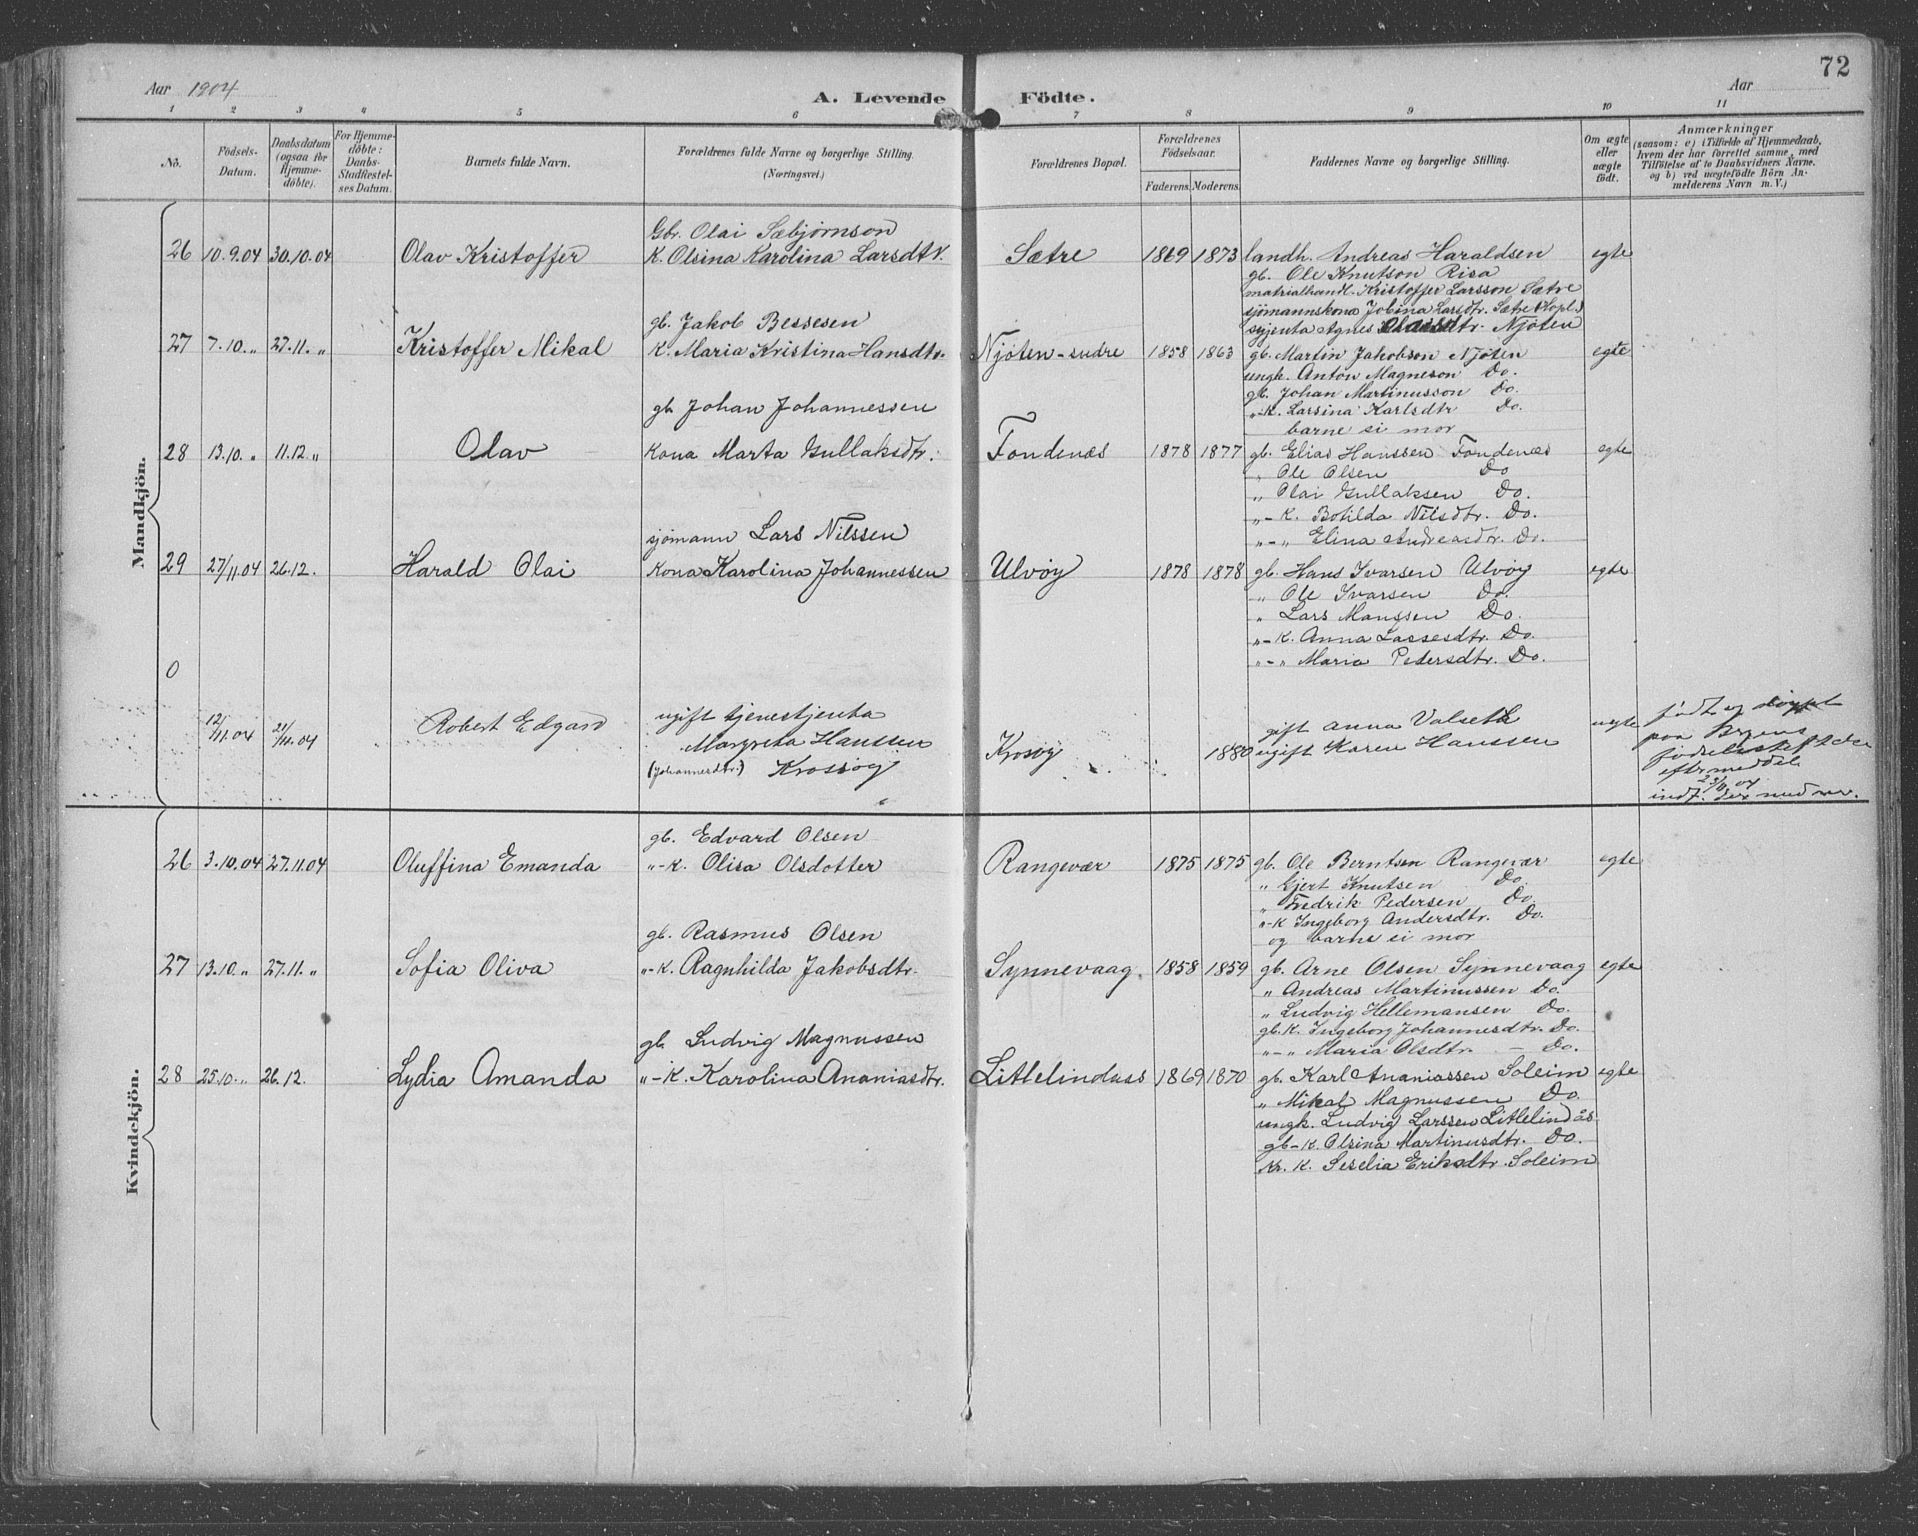 72
Aar 1904
A. Levende Födte.
Aar
1 2 3 4 5 6 7 8 9 10 11
No.
Födsels-Datum.
Daabsdatum (ogsaa for Hjemmedöbte).
For Hjemmedöbte: Daabs-Stadfæstelses Datum.
Barnets fulde Navn.
Forældrenes fulde Navne og borgerlige Stilling.
(Næringsvei.)
Forældrenes Bopæl.
Forældrenes Födselsaar.
Faderens. Moderens.
Faddernes Navne og borgerlige Stilling.
Om ægte eller uægte födt.
Anmærkninger
(saasom: a) i Tilfælde af Hjemmedaab,
hvem der har forrettet samme, med
Tilföielse af to Daabsvidners Navne.
og b) ved uægtefödte Börn Anmelderens Navn m. V.)
Mandkjön.
Gbr. Olai Sæbjørnson
26 10.9.04 30.10.04 Olav Kristoffer K. Olsina Karolina Larsdtr. Sætre 1869 1873 landh. Andreas Haraldsen egte
gb. Ole Knutson Risa
matrialhandl. Kristoffer Larsson Sætre
sjömannskona Jobina Larsdtr. Sætre (Hopl.)
syjenta Agnes Njöten
gb. Jakob Bessesen
27 7.10. „ 27.11. „ Kristoffer Mikal K. Maria Kristina Hansdtr. Njöten-sudre 1858 1863 gb. Martin Jakobson Njöten egte
ungk. Anton Magneson Do.
gb. Johan Martinusson Do.
„-K. Larsina Karlsdtr Do.
barne si mor
gb. Johan Johannessen
28 13.10. „ 11.12. „ Olav Kona Marta Gullaksdtr. Fondenæs 1878 1877 gb. Elias Hanssen Fondenæs egte
„ Ole Olsen Do
„ Olai Gullaksen Do.
„-K. Botilda Nilsdtr. Do.
„-„ Elina Andreasdtr. Do.
sjömann Lars Nilssen
29 27/11.04 26.12. Harald Olai Kona Karolina Johannessen Ulvöy 1878 1878 gb. Hans Ivarsen Ulvöy egte
„ Ole Ivarsen Do.
„ Lars Monssen Do.
„-K. Anna Lassesdtr. Do.
„-„ Maria Pedersdtr. Do.
0
12/11.04 21/11.04 Robert Edgard ugift tjenestjenta
Margreta Hanssen
(Johannesdtr.) Krossöy
Krosöy 1880
gift Anna Valseth
ugift Karen Hanssen
uegte
födt og döypt
paa Byens
födselsstift
efter meddel.
23/11 04
indf.
Kvindekjön.
gb. Edvard Olsen
26 3.10.04 27.11.04 Oluffina Emanda „-K. Olisa Olsdotter Rangevær 1875 1875 gb. Ole Berntsen Rangevær egte
„ Gjert Knutsen Do.
„ Fredrik Pedersen Do.
„-K Ingeborg Andersdtr. Do.
og barne si mor
gb. Rasmus Olsen
27 13.10. „ 27.11. „ Sofia Oliva „-K. Ragnhilda Jakobsdtr. Synnevaag. 1858 1859 gb. Arne Olsen Synnevaag egte
„ Andreas Martinussen Do.
„ Ludvig Hellemansen Do.
gb.K. Ingeborg Johannesdtr. Do.
„-„ Maria Olsdtr. - Do.
gb. Ludvig Magnussen
28 25.10. „ 26.12. Lydia Amanda „-K. Karolina Ananiasdtr. Litlelindaas 1869 1870 gb. Karl Ananiassen Soleim egte
„ Mikal Magnussen Do.
ungk. Ludvig Larssen Litlelindås
gb-K. Olsina Martinusdtr. Do.
K. Seselia Eriksdtr. Soleim